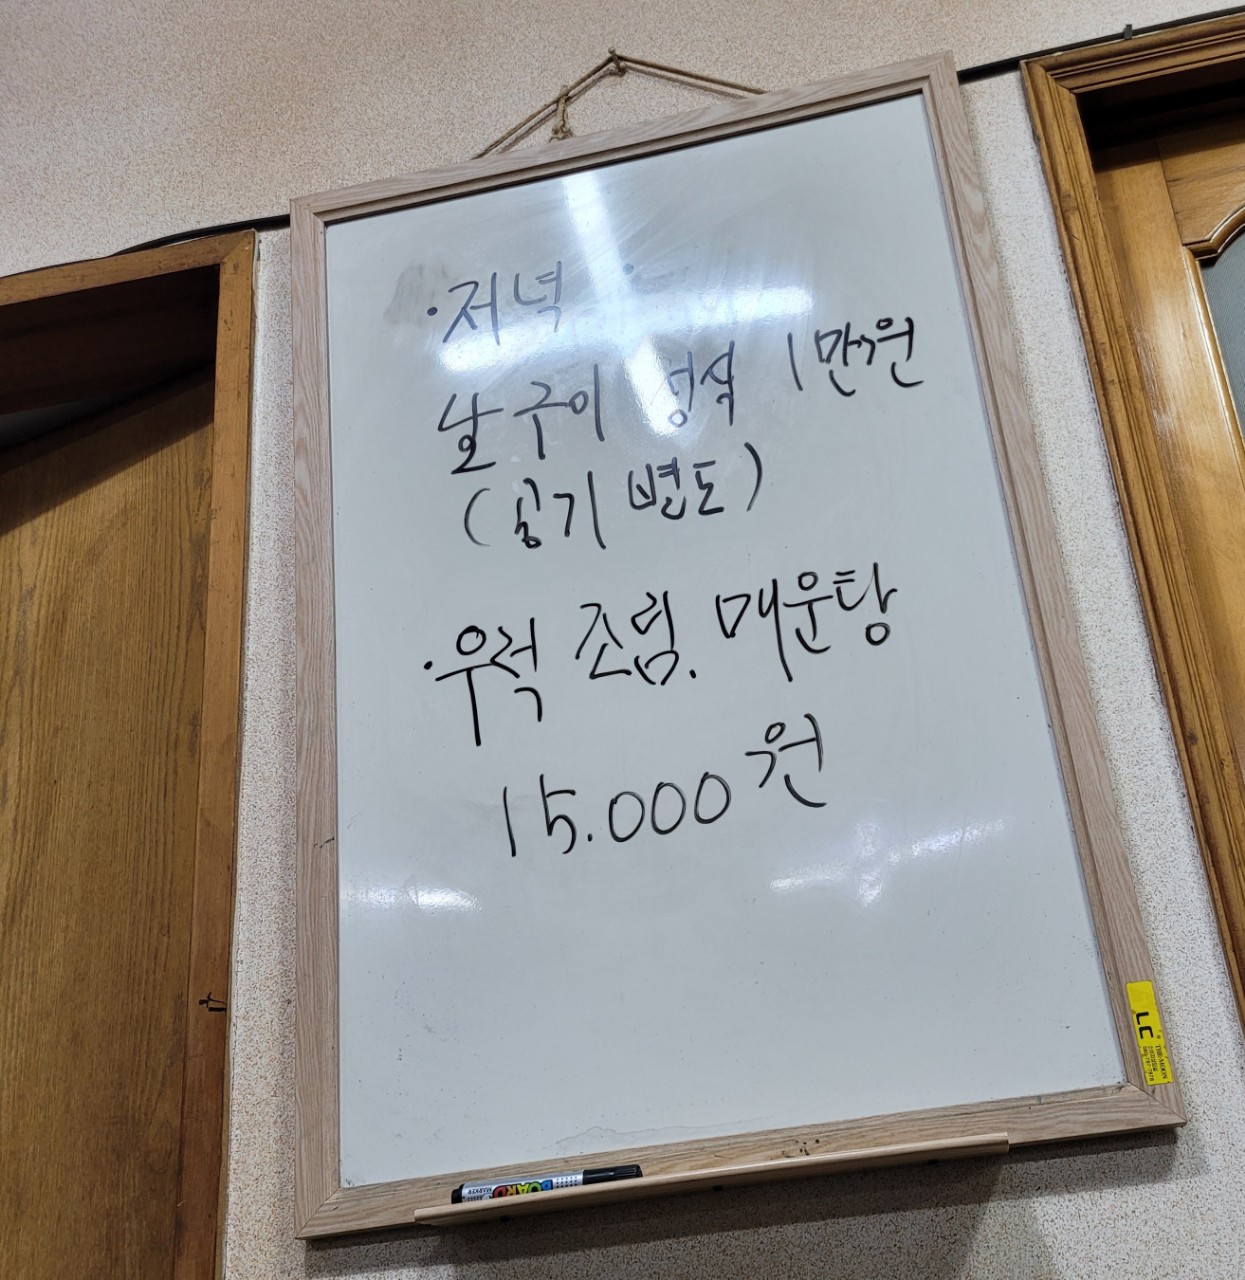 ·저녁
날 구이 정식 1만원
(공기 별도)
·우럭 조림. 매운탕
15.000원
LC
BOARD
MARKER